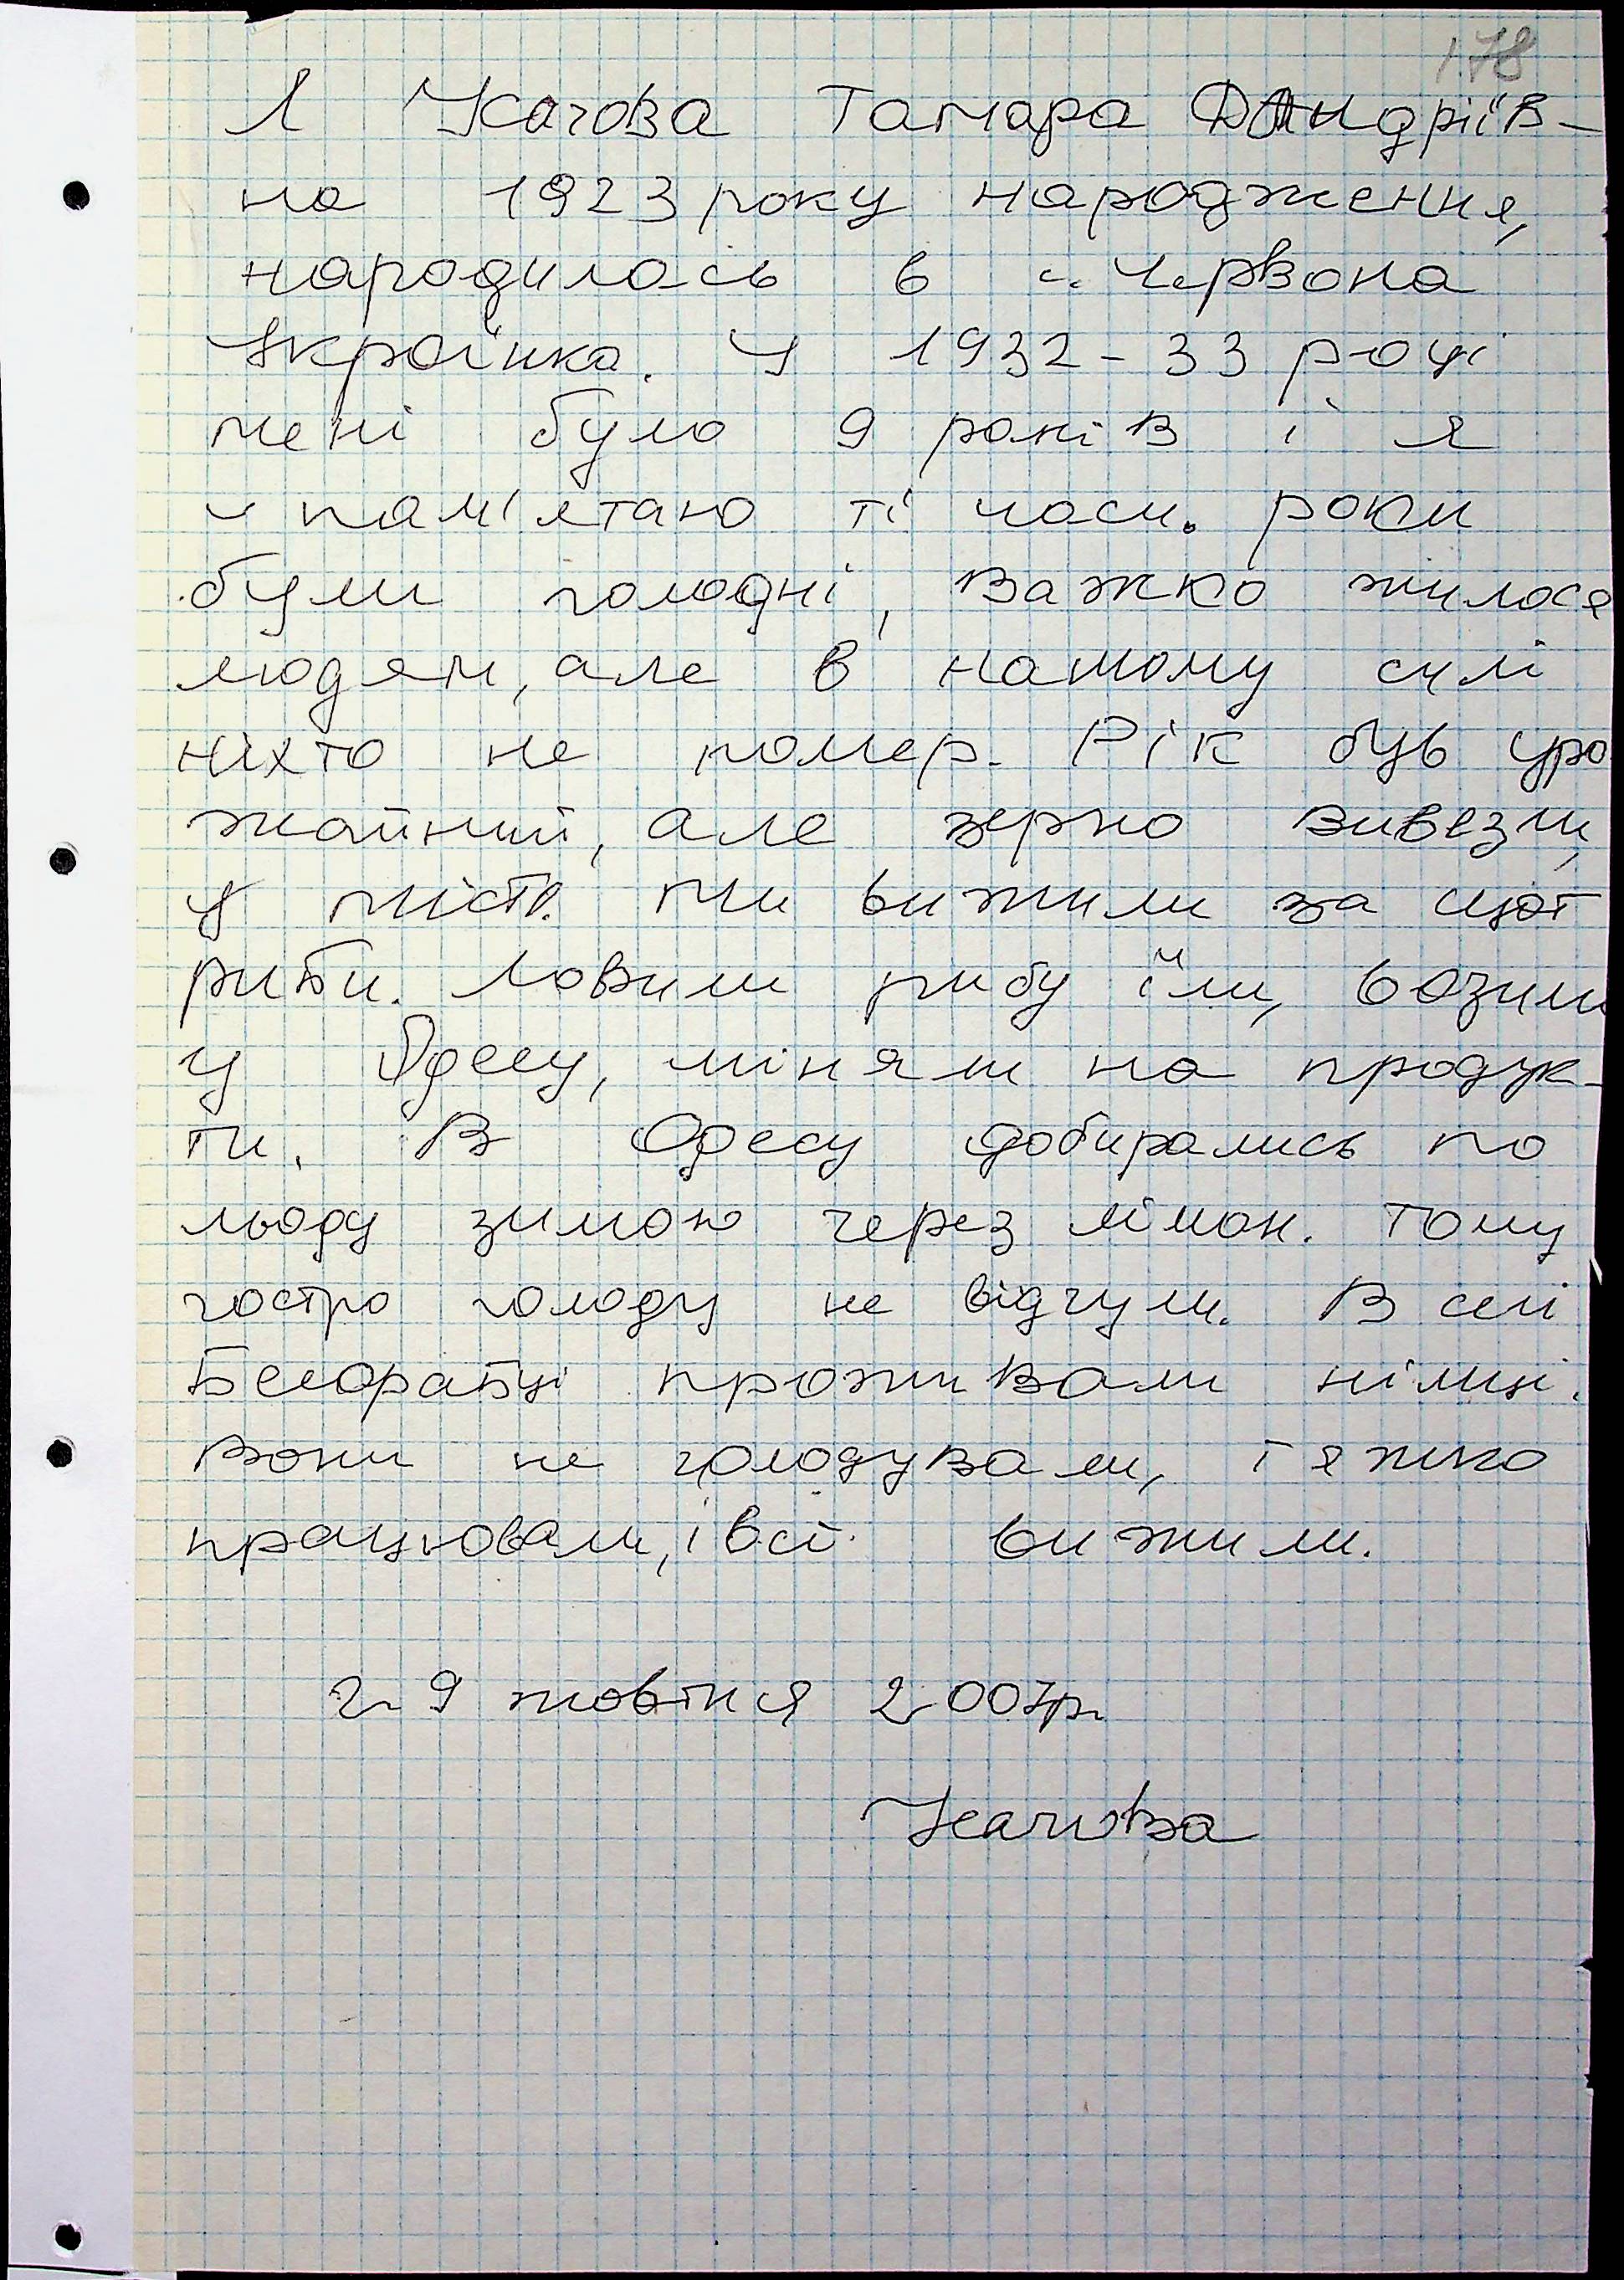 178
Я Усачова Тамара Андріїв-
на 1923 року народження,
народилась в с. Червона
Українка. У 1932-33 році
мені було 9 років і я
пам'ятаю ті часи. роки
були голодні, важко жилося
людям, але в нашому селі
ніхто не помер. Рік був уро
жайний, але зерно вивезли,
у місто. Ми вижили за щот
риби. Ловили рибу їли, возили
у Одесу, міняли на продук-
ти. В Одесу добирались по
льоду зимою через лиман. Тому
гостро голоду не відчули. В селі
проживали німці.
Вони не голодували, тяжко
працювали, і всі вижили.
29 жовтня 2007р.